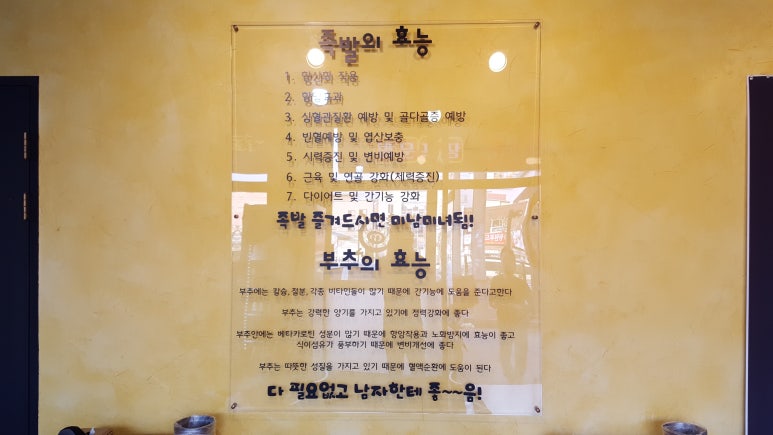 족발의 효능
1. 항산화 작용
2. 항암효과
3. 심혈관질환 예방 및 골다골증 예방
4. 빈혈예방 및 엽산보충
5. 시력증진 및 변비예방
6. 근육 및 연골 강화(체력증진)
7. 다이어트 및 간기능 강화
족발 즐겨드시면 미남미녀됨!
부추의 효능
부추에는 칼슘,철분,각종 비타민들이 많기 때문에 간기능에 도움을 준다고한다
부추는 강력한 양기를 가지고 있기에 정력강화에 좋다
부추안에는 베타카로틴 성분이 많기 때문에 항암작용과 노화방지에 효능이 좋고
식이섬유가 풍부하기 때문에 변비개선에 좋다
부추는 따뜻한 성질을 가지고 있기 때문에 혈액순환에 도움이 된다
다 필요없고 남자한테 좋~~음!